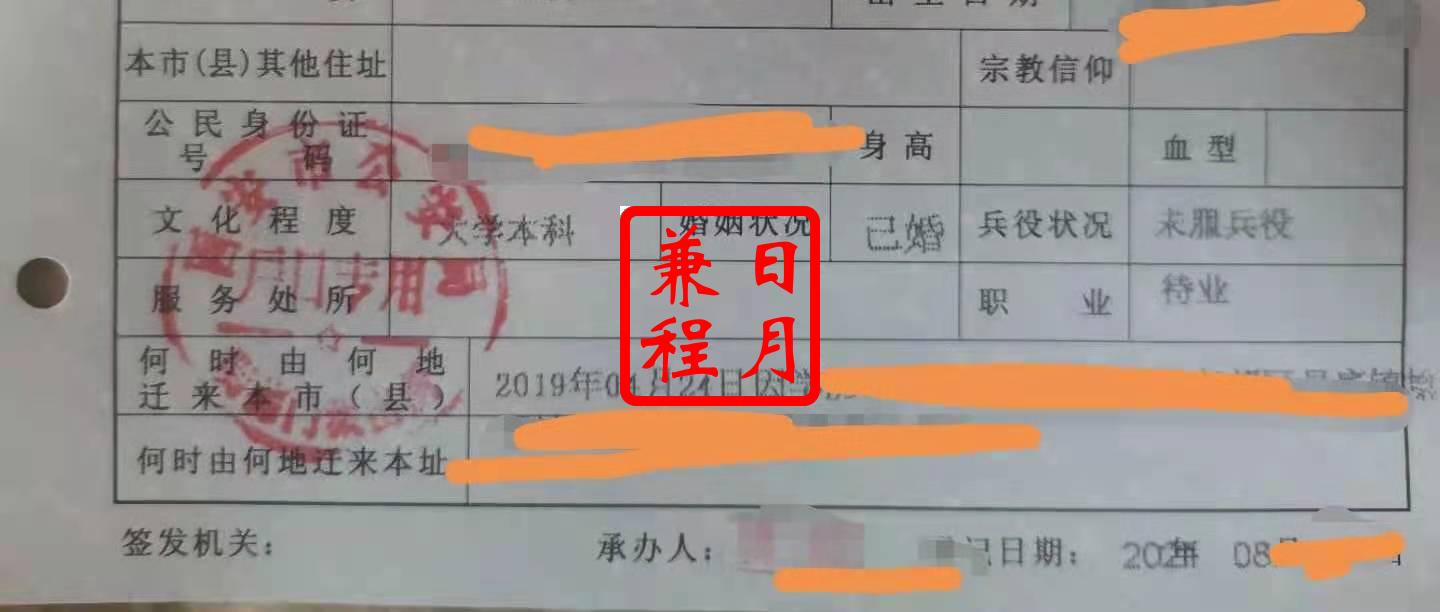 出生日期
本市(县)其他住址
宗教信仰
公民身份证
号码
身高
血型
文化程度
大学本科
婚姻状况
已婚
兵役状况
未服兵役
服务处所
职业
待业
户口专用
兼日
程月
何时由何地
迁来本市(县)
2019年04月24日因学
何时由何地迁来本址
签发机关:
承办人:
记日期:
2021年 08